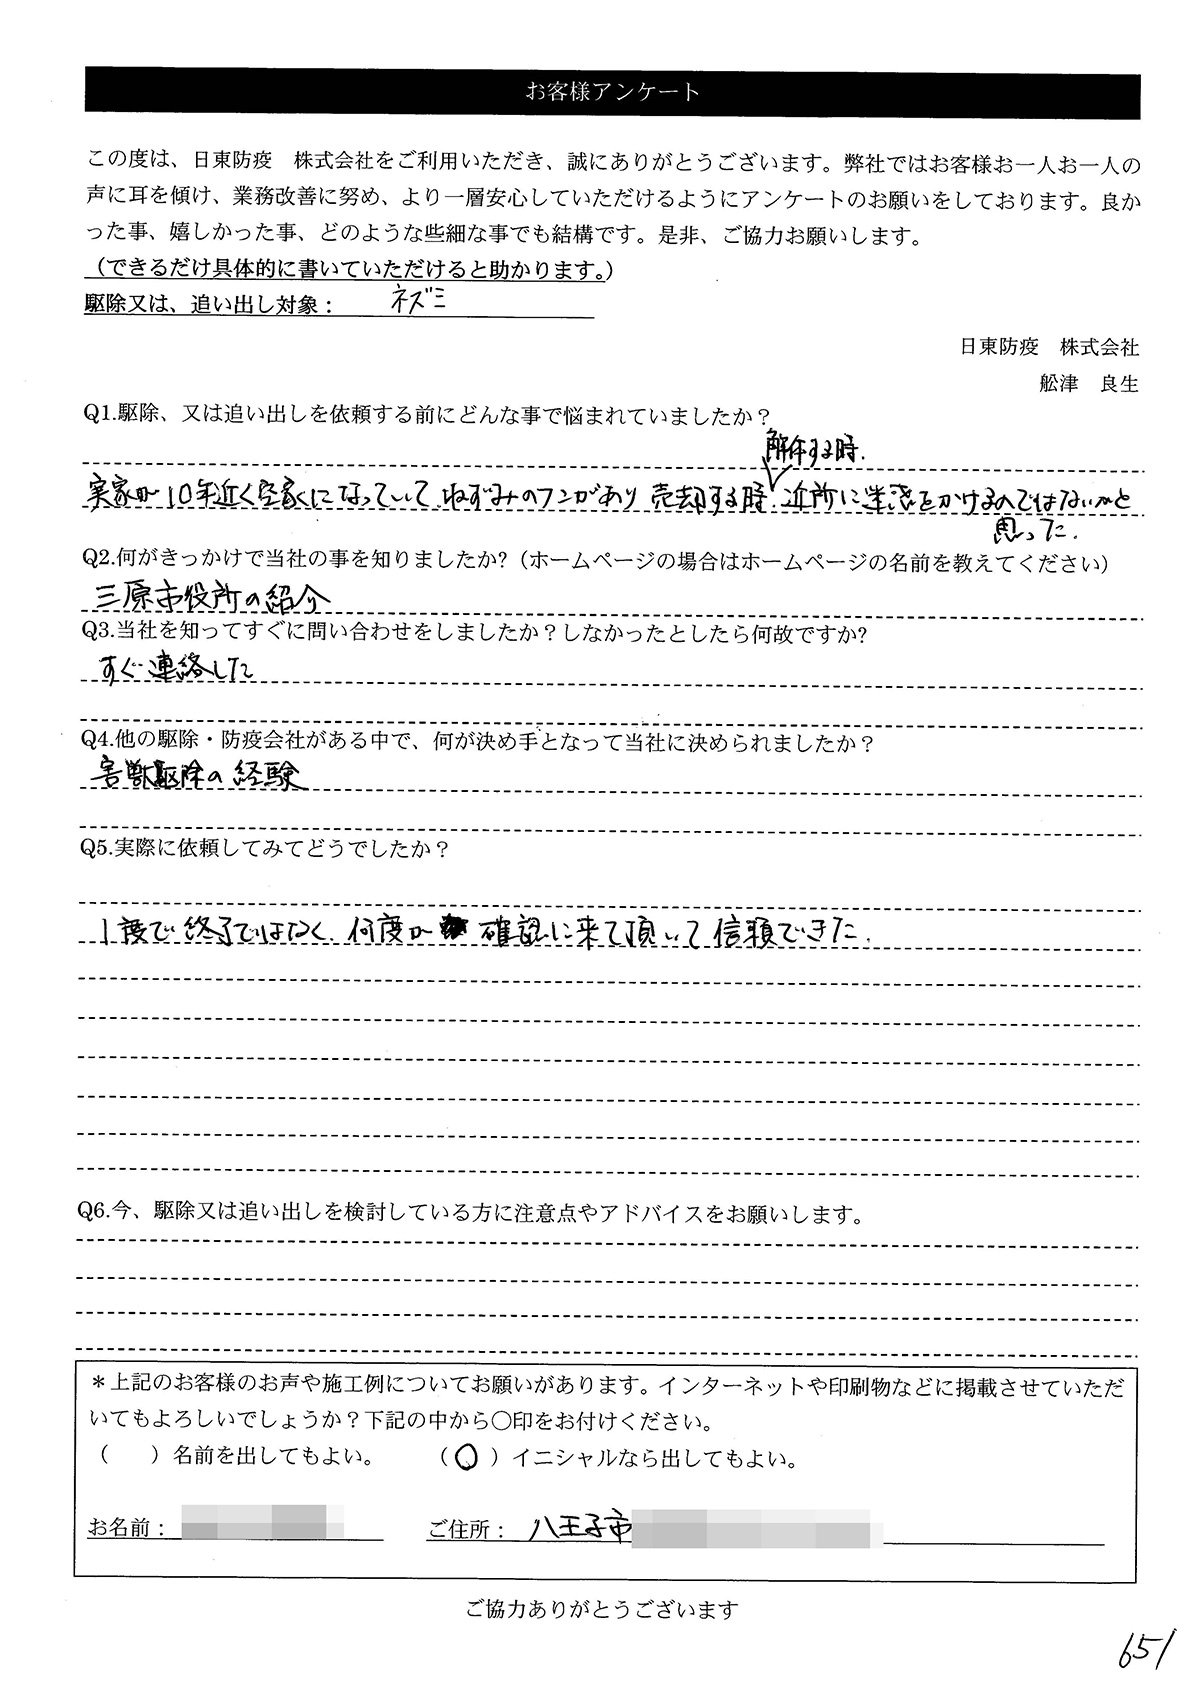 お客様アンケート
この度は、日東防疫　株式会社をご利用いただき、誠にありがとうございます。弊社ではお客様お一人お一人の
声に耳を傾け、業務改善に努め、より一層安心していただけるようにアンケートのお願いをしております。良か
った事、嬉しかった事、どのような些細な事でも結構です。是非、ご協力お願いします。
（できるだけ具体的に書いていただけると助かります。）
駆除又は、追い出し対象： ネズミ
日東防疫　株式会社
舩津　良生
Q1.駆除、又は追い出しを依頼する前にどんな事で悩まれていましたか？
解体する時.
実家が10年近く空家になっていて、ねずみのフンがあり 売却する時、近所に迷惑をかけるのではないかと
思った.
Q2.何がきっかけで当社の事を知りましたか?（ホームページの場合はホームページの名前を教えてください）
三原市役所の紹介
Q3.当社を知ってすぐに問い合わせをしましたか？しなかったとしたら何故ですか?
すぐ連絡した
Q4.他の駆除・防疫会社がある中で、何が決め手となって当社に決められましたか？
害獣駆除の経験
Q5.実際に依頼してみてどうでしたか？
1度で終了ではなく、何度か 確認に来て頂いて信頼できた.
Q6.今、駆除又は追い出しを検討している方に注意点やアドバイスをお願いします。
＊上記のお客様のお声や施工例についてお願いがあります。インターネットや印刷物などに掲載させていただ
いてもよろしいでしょうか？下記の中から〇印をお付けください。
（　　）名前を出してもよい。　　（〇）イニシャルなら出してもよい。
お名前：　　ご住所： 八王子市
ご協力ありがとうございます
651